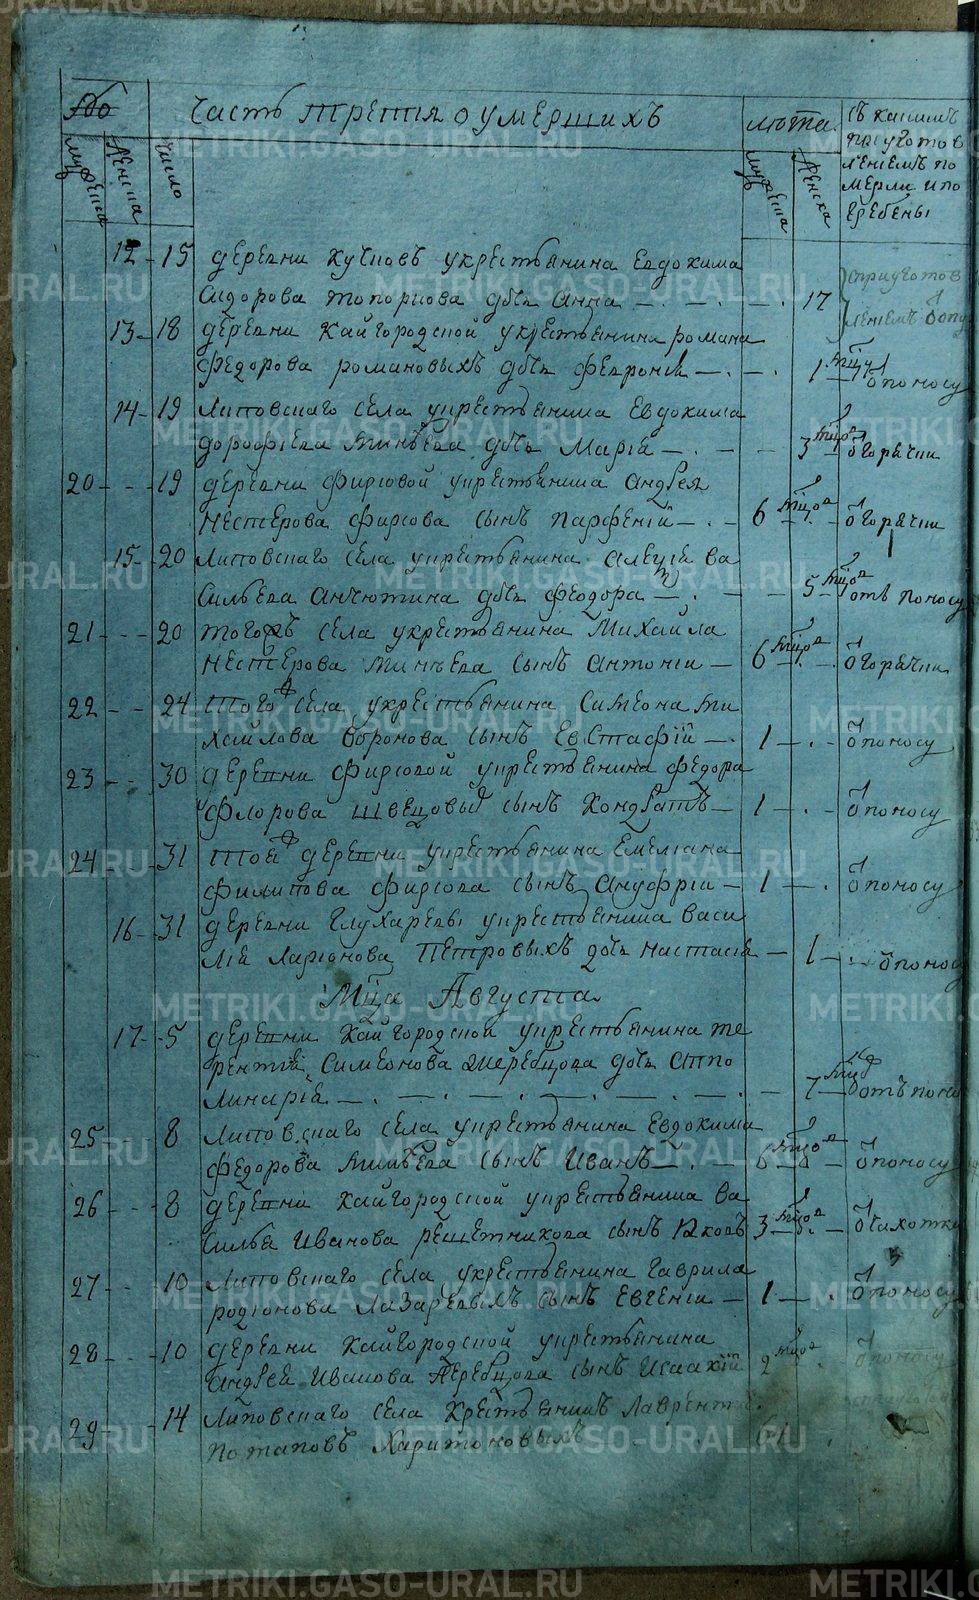 Часть третiя о умершихъ
лѣта
мужеска
женска
число
мужеска
женска
съ какимъ
приуготов
ленiемъ по
мерли и по
гребены
12 15 деревни Кученовъ у крестьянина Евдокима
Сидорова Топоркова дочь Анна 17
ленiемъ
13 18 деревни Кайгородской у крестьянина Романа
Федорова Романовыхъ дочь Феврония 1 поносу
14 19 Липовскаго села у крестьянина Евдокима
Дорофѣева Минѣева дочь Марiя 3 горячки
20 19 деревни Фирсовой у крестьянина Андрея
Нестерова Фирсова сынъ Парфенiй 6 горячки
15 20 Липовскаго села у крестьянина Алексiя Ва
сильева Анчютина дочь Феодора 5 отъ поносу
21 20 тогожъ села у крестьянина Михайла
Нестерова Минѣева сынъ Антонiй 6 горячки
22 24 тогожъ села у крестьянина Симеона Ми
хайлова Воронова сынъ Евстафiй 1 поносу
23 30 деревни Фирсовой у крестьянина Федора
Флорова Швецовы сынъ Кондратъ 1 поносу
24 31 тоежъ деревни у крестьянина Емелiана
Филипова Фирсова сынъ Ануфрiй 1 поносу
16 31 деревни Глухаревы у крестьянина Васи
лiя Ларiонова Петровыхъ дочь Настасiя 1 поносу
Мца Августа
17 5 деревни Кайгородской у крестьянина Те
рентiя Симеонова Жеребцова дочь Аппо
линарiя 7 отъ поно
25 8 Липовскаго села у крестьянина Евдокима
Федорова Минѣева сынъ Иванъ 6 поносу
26 8 деревни Кайгородской у крестьянина Ва
силья Иванова Решетникова сынъ Яковъ 3 чихотки
27 10 Липовскаго села у крестьянина Гаврила
Родiонова Лазаревыхъ сынъ Евгенiй 1 поносу
28 10 деревни Кайгородской у крестьянина
Андрея Иванова Жеребцова сынъ Исаакiй 2 поносу
29 14 Липовскаго села крестьянинъ Лаврентiй
Потаповъ Харитоновыхъ 61
METRIKI.GASO-URAL.RU